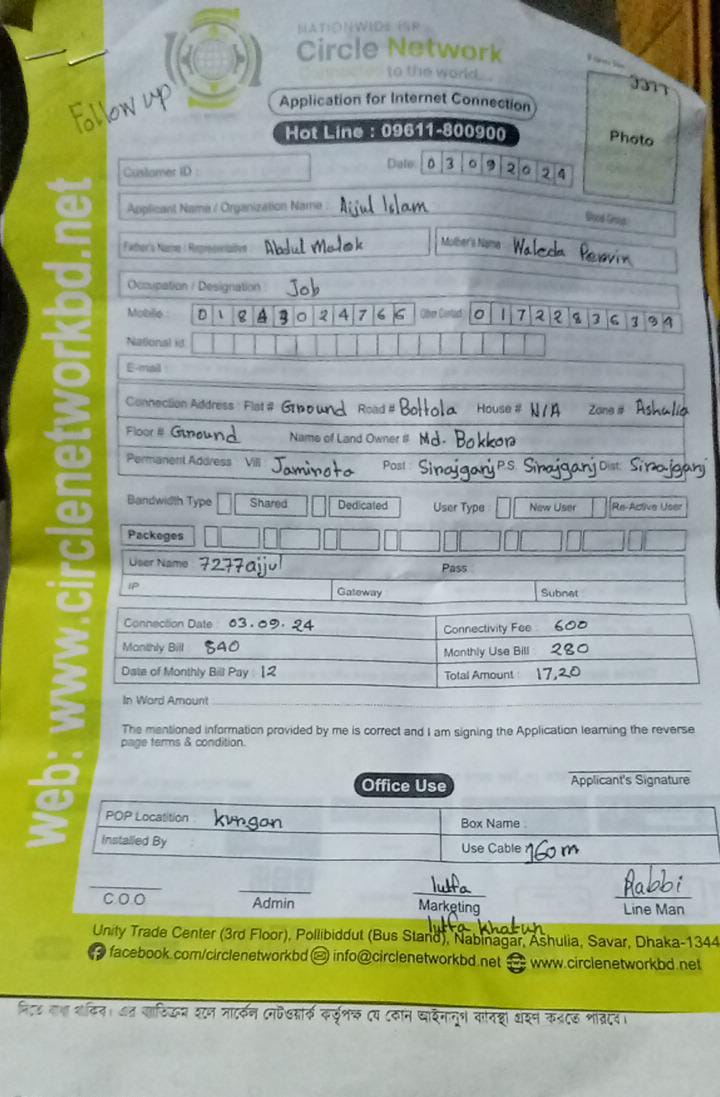 NATIONWIDE ISP
Circle Network
Connected to the world...
Follow up
3377
Photo
Application for Internet Connection
Hot Line : 09611-800900
Customer ID :
Date: 03092024
Applicant Name / Organization Name : Aijul Islam
Blood Group:
Father's Name / Representative : Abdul Malek Mother's Name Waleda Pervin
Occupation / Designation : Job
Mobile : Other Contact : 01722836394
National Id
E-mail :
Connection Address : Flat # Ground Road # Bottola House # N/A Zone # Ashulia
Floor # Ground Name of Land Owner # Md. Bokkor
Permanent Address Vill: Post : Sirajganj P.S. Sirajganj Dist: Sirajganj
Bandwidth Type Shared Dedicated User Type : New User Re-Active User
Packeges
User Name : 7277aijul Pass :
IP Gateway Subnet :
Connection Date : 03.09.24 Connectivity Fee : 600
Monthly Bill : 840 Monthly Use Bill : 280
Date of Monthly Bill Pay : 12 Total Amount : 17,20
In Word Amount
The mentioned information provided by me is correct and I am signing the Application learning the reverse
page terms & condition.
Applicant's Signature
Office Use
POP Locatition : Box Name :
Installed By Use Cable 160m
lutfa Rabbi
C.O.O Admin Marketing Line Man
lutfa khatun
Unity Trade Center (3rd Floor), Pollibiddut (Bus Stand), Nabinagar, Ashulia, Savar, Dhaka-1344
facebook.com/circlenetworkbd info@circlenetworkbd.net www.circlenetworkbd.net
web: www.circlenetworkbd.net
দিতে বাধ্য থাকিব। এর ব্যতিক্রম হলে সার্কেল নেটওয়ার্ক কর্তৃপক্ষ যে কোন আইনানুগ ব্যবস্থা গ্রহন করতে পারবে।